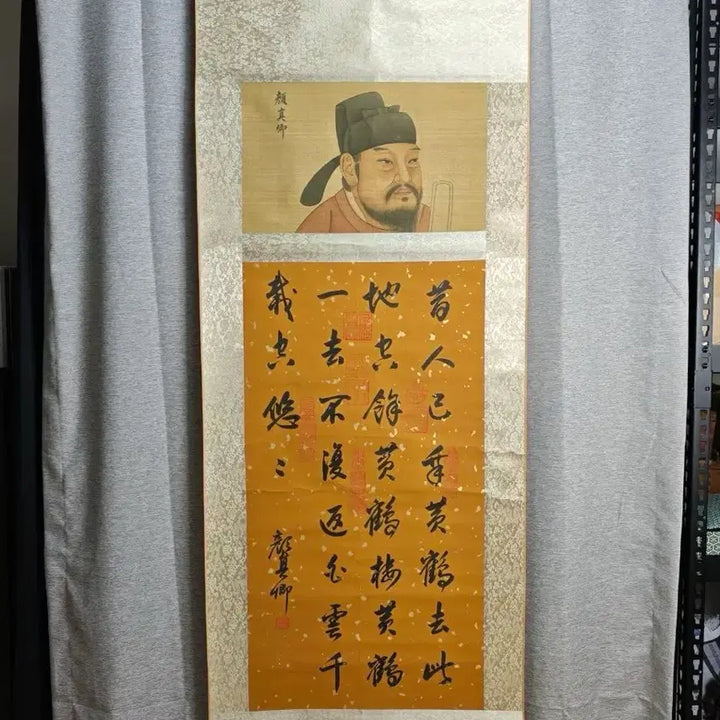 顏真卿
昔人已乘黄鶴去此
地空餘黄鶴樓黄鶴
一去不復返白雲千
載空悠〻
顏真卿